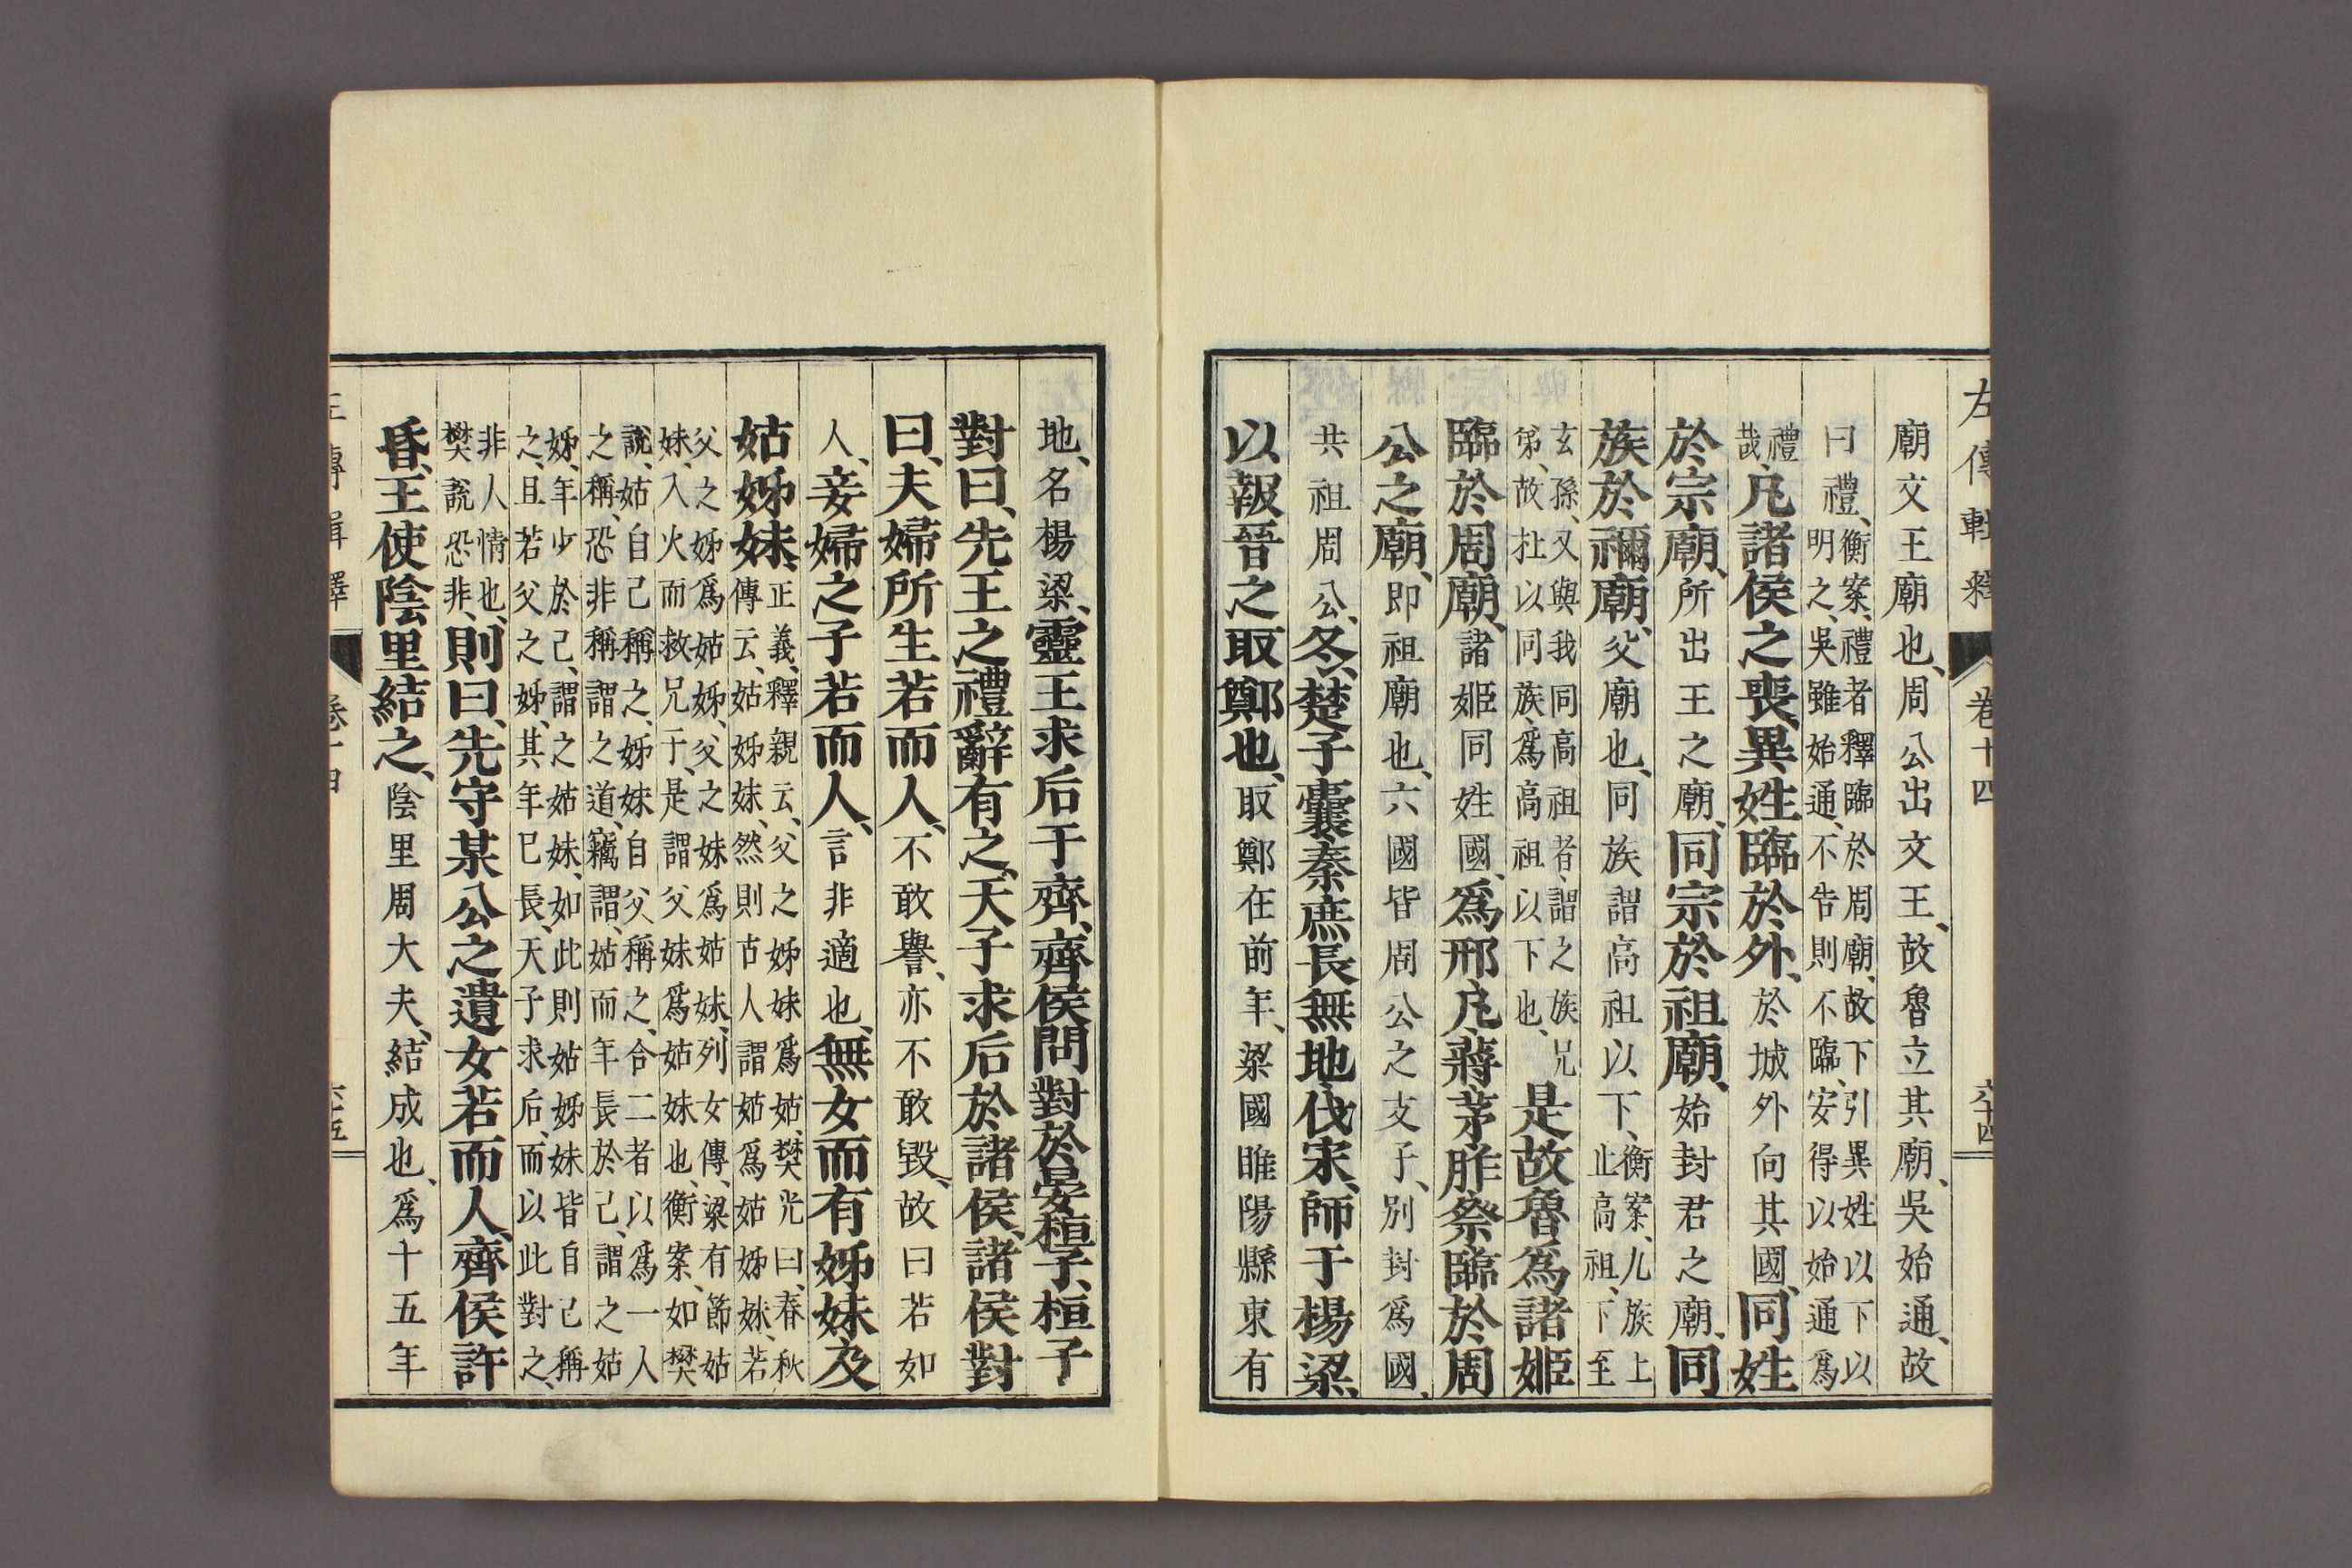 左傳輯釋 卷十四 六十四
廟文王廟也、周公出文王、故魯立其廟、吳始通、故
曰禮、衡案、禮者釋臨於周廟、故下引異姓以下以明之、吳雖始通、不告則不臨、安得以始通爲
禮哉、凡諸侯之喪、異姓臨於外、於城外向其國、同姓
於宗廟、所出王之廟、同宗於祖廟、始封君之廟、同
族於禰廟、父廟也、同族謂高祖以下、衡案、九族上止高祖、下至
玄孫、又與我同高祖者、謂之族兄弟、故杜以同族、爲高祖以下也、是故魯爲諸姬
臨於周廟、諸姬同姓國、爲邢凡蔣茅胙祭臨於周
公之廟、即祖廟也、六國皆周公之支子、別封爲國、
共祖周公、冬、楚子囊秦庶長無地伐宋、師于楊梁、
以報晉之取鄭也、取鄭在前年、梁國睢陽縣東有
地、名楊梁、靈王求后于齊、齊侯問對於晏桓子、桓子
對曰、先王之禮辭有之、天子求后於諸侯、諸侯對
曰、夫婦所生若而人、不敢譽、亦不敢毀、故曰若如
人、妾婦之子若而人、言非適也、無女而有姊妹及
姑姊妹、正義、釋親云、父之姊妹爲姑、樊光曰、春秋傳云、姑姊妹、然則古人謂姑爲姑姊妹、若
父之姊爲姑姊、父之妹爲姑妹、列女傳、梁有節姑妹、入火而救兄子、是謂父妹爲姑妹也、衡案、如樊
說、姑自己稱之、姊妹自父稱之、合二者以爲一人之稱、恐非稱謂之道、竊謂、姑而年長於己、謂之姑
姊、年少於己、謂之姑妹、如此則姑姊妹皆自己稱之、且若父之姊、其年已長、天子求后、而以此對之、
非人情也、樊說恐非、則曰、先守某公之遺女若而人、齊侯許
昏、王使陰里結之、陰里周大夫、結成也、爲十五年
左傳輯釋 卷十四 六十五